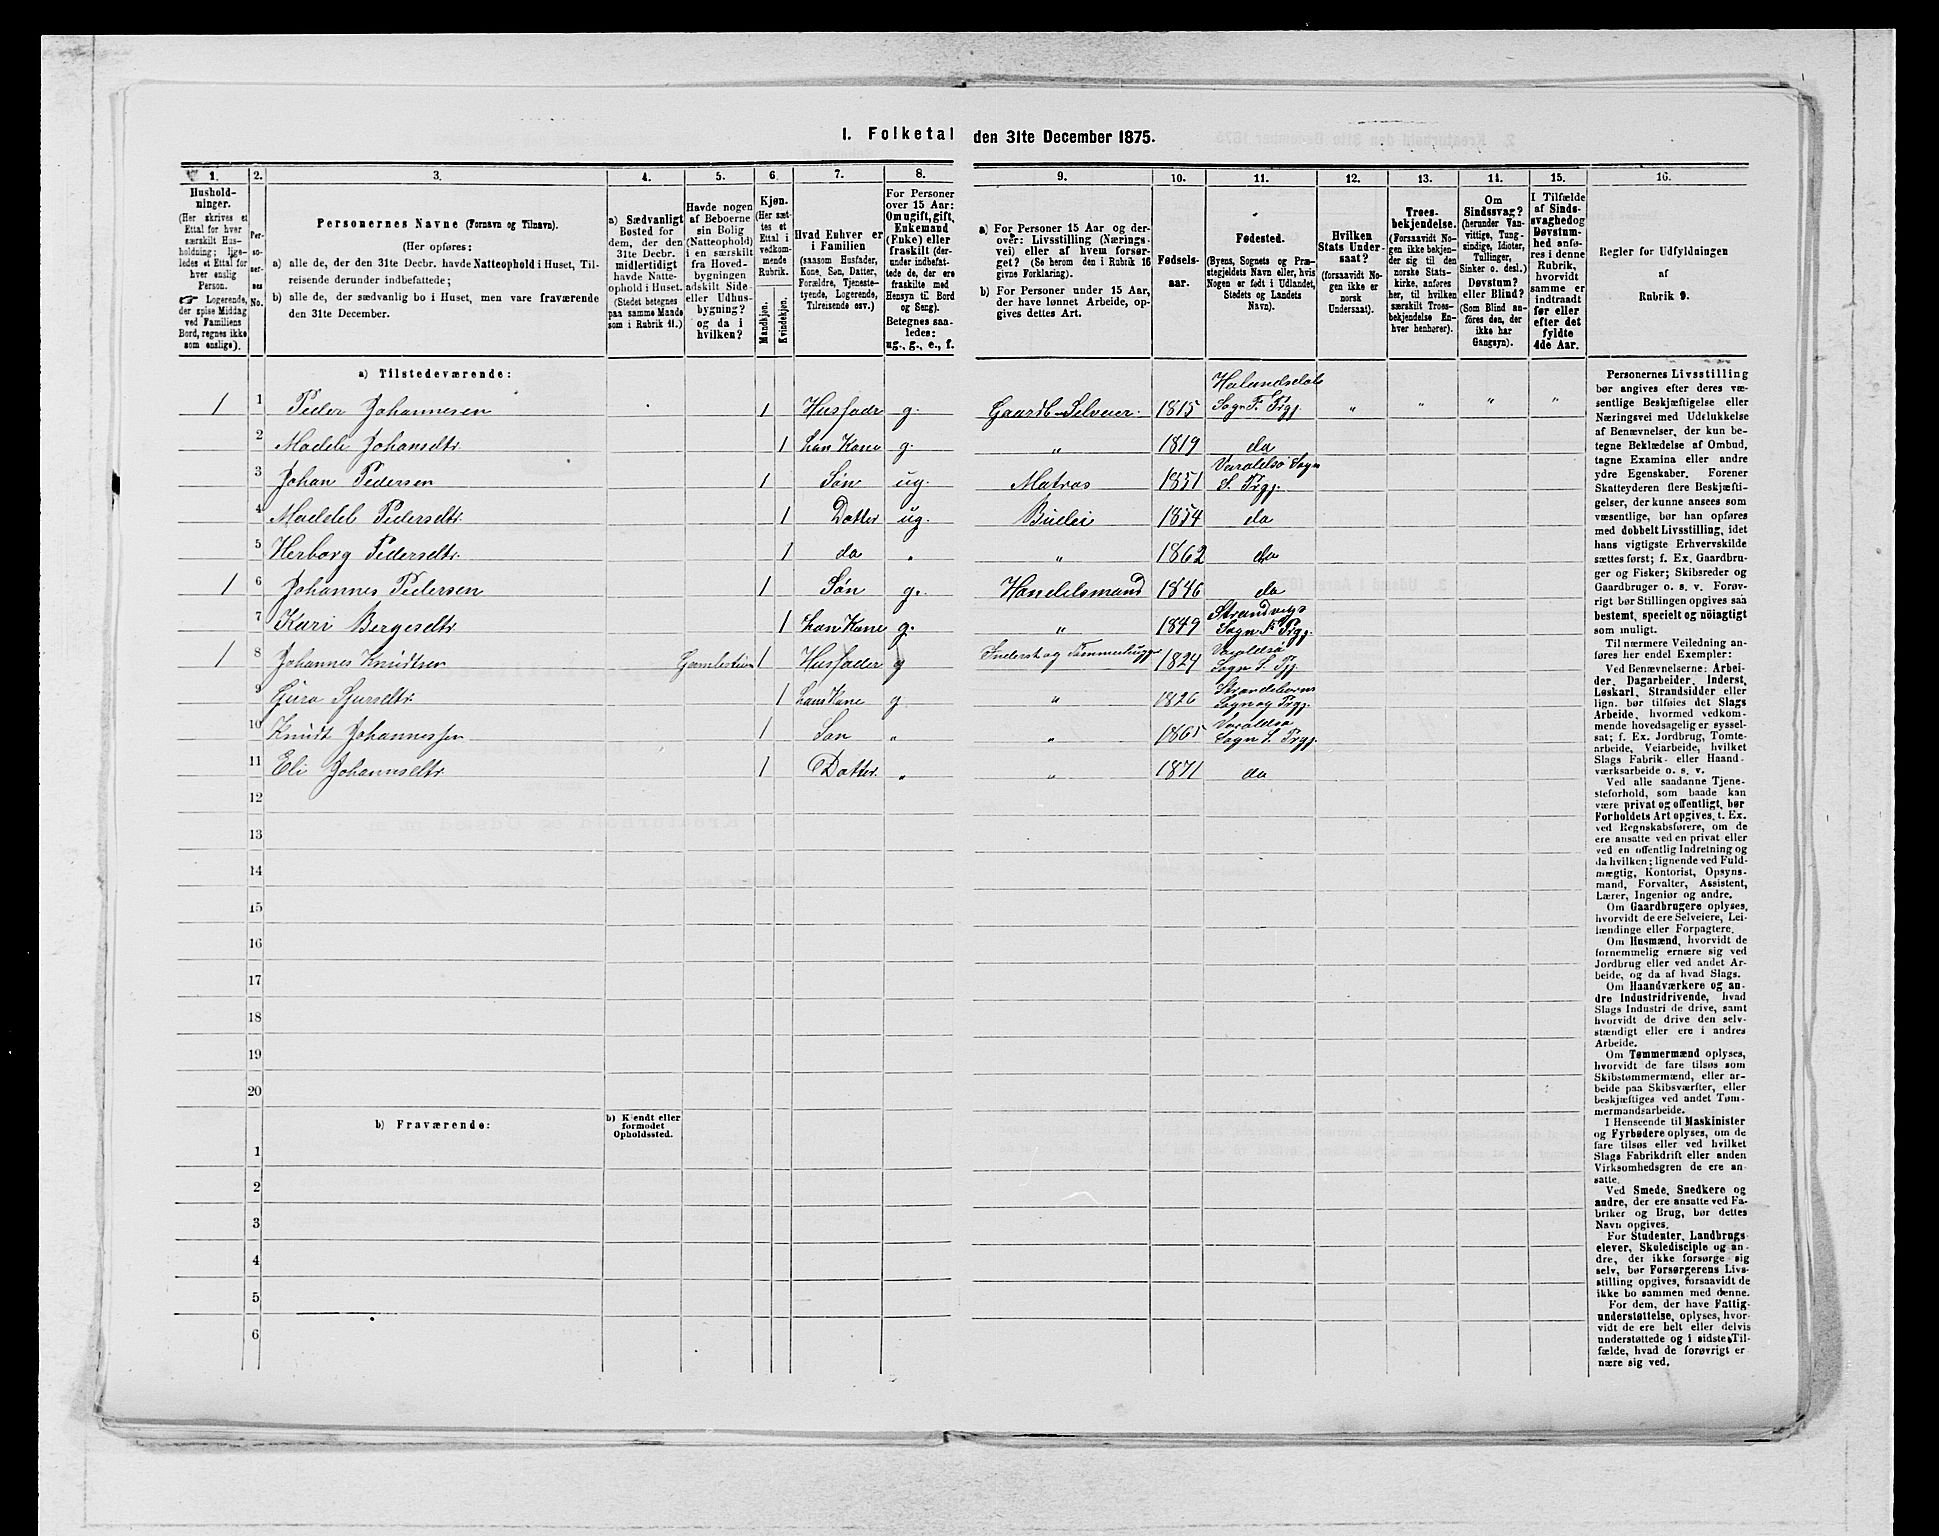 I. Folketal den 31te December 1875.
1. 2. 3. 4. 5. 6. 7. 8. 9. 10. 11. 12. 13. 14. 15. 16.
Hushold-
ninger.
(Her skrives et
Ettal for hver
særskilt Hus-
holdning; lige-
ledes et Ettal for
hver enslig
Person.
☞ Logerende,
der spise Middag
ved Familiens
Bord, regnes ikke
som enslige).
Per-
so-
ner-
nes
No.
Personernes Navne (Fornavn og Tilnavn).
(Her opføres:
a) alle de, der den 31te Decbr. havde Natteophold i Huset, Til-
reisende derunder indbefattede;
b) alle de, der sædvanlig bo i Huset, men vare fraværende
den 31te December.
a) Sædvanligt
Bosted for
dem, der den
31te Decbr.
midlertidigt
havde Natte-
ophold i Huset.
(Stedet betegnes
paa samme Maade
som i Rubrik 11.)
Havde nogen
af Beboerne
sin Bolig
(Natteophold)
i en særskilt
fra Hoved-
bygningen
adskilt Side-
eller Udhus-
bygning?
og da i
hvilken?
Kjøn.
(Her sæt-
tes et
Ettal i
vedkom-
mende
Rubrik.
Mandkjøn.
Kvindekjøn.
Hvad Enhver er
i Familien
(saasom Husfader,
Kone, Søn, Datter,
Forældre, Tjeneste-
tyende, Logerende,
Tilreisende osv.)
For Personer
over 15 Aar:
Om ugift, gift,
Enkemand
(Enke) eller
fraskilt (der-
under indbefat-
tede de, der ere
fraskilte med
Hensyn til Bord
og Seng).
Betegnes saa-
ledes:
ug., g., e., f.
a) For Personer 15 Aar og der-
over: Livsstilling (Nærings-
vei) eller af hvem forsør-
get? (Se herom den i Rubrik 16
givne Forklaring).
b) For Personer under 15 Aar,
der have lønnet Arbeide, op-
gives dettes Art.
Fødsels-
aar.
Fødested.
(Byens, Sognets og Præ-
stegjeldets Navn eller, hvis
Nogen er født i Udlandet,
Stedets og Landets
Navn).
Hvilken
Stats Under-
saat?
(forsaavidt No-
gen ikke er
norsk
Undersaat).
Troes-
bekjendelse.
(Forsaavidt No-
gen ikke bekjen-
der sig til den
norske Stats-
kirke, anføres
her, til hvilken
særskilt Troes-
bekjendelse En-
hver henhører).
Om
Sindssvag?
(herunder Van-
vittige, Tung-
sindige, Idioter,
Tullinger,
Sinker o. desl.)
Døvstum?
eller Blind?
(Som Blind an-
føres den, der
ikke har
Gangsyn).
I Tilfælde
af Sinds-
svaghed og
Døvstum-
hed anfø-
res i denne
Rubrik,
hvorvidt
samme er
indtraadt
før eller
efter det
fyldte
4de Aar.
Regler for Udfyldningen
af
Rubrik 9.
a) Tilstedeværende:
1 1 Peder Johannesen 1 Husfader g. Gaardb Selveier. 1815 Halandsdals Sogn F. Prgj. " " " "
2 Madele Johansdtr 1 hans Kone g. " 1819 da
3 Johan Pedersen 1 Søn ug. Matros 1851 Varaldsø Sogn S. Prgj.
4 Maddel Pedersdtr. 1 Datter ug. Budei 1854 da
5 Herborg Pedersdtr. 1 da " " 1862 da
1 6 Johannes Pedersen 1 Søn g. Handelsmand 1846 da
7 Kari Bergesdtr. 1 hans Kone g. " 1849 Strandvigs Sogn F. Prgj.
1 8 Johannes Knudtsen 1 Husfader g Inderst og Tømmerhugger 1824 Varaldsø Sogn S. Pgj.
9 Sjursdtr. 1 hans Kone g " 1826 Sogn og Prgj.
10 Knudt Johannessen 1 Søn " " 1865 Varaldsø Sogn S. Prgj.
11 Eli Johannesdtr 1 Datter. " " 1871 da
12
13
14
15
16
17
18
19
20
b) Fraværende:
b) Kjendt eller
formodet
Opholdssted.
1
2
3
4
5
6
Personernes Livsstilling
bør angives efter deres væ-
sentlige Beskjæftigelse eller
Næringsvei med Udelukkelse
af Benævnelser, der kun be-
tegne Beklædelse af Ombud,
tagne Examina eller andre
ydre Egenskaber. Forener
Skatteyderen flere Beskjæfti-
gelser, der kunne ansees som
væsentlige, bør han opføres
med dobbelt Livsstilling, idet
hans vigtigste Erhvervskilde
sættes først; f. Ex. Gaardbru-
ger og Fisker; Skibsreder og
Gaardbruger o. s. v. Forøv-
rigt bør Stillingen opgives saa
bestemt, specielt og nøiagtigt
som muligt.
Til nærmere Veiledning an-
føres her endel Exempler:
Ved Benævnelserne: Arbei-
der, Dagarbeider, Inderst,
Løskarl, Strandsidder eller
lign. bør tilføies det Slags
Arbeide, hvormed vedkom-
mende hovedsagelig er syssel-
sat; f. Ex. Jordbrug, Tomte-
arbeide, Veiarbeide, hvilket
Slags Fabrik- eller Haand-
værksarbeide o. s. v.
Ved alle saadanne Tjene-
steforhold, som baade kan
være privat og offentligt, bør
Forholdets Art opgives, t. Ex.
ved Regnskabsførere, om de
ere ansatte ved en privat eller
ved en offentlig Indretning og
da hvilken; lignende ved Fuld-
mægtig, Kontorist, Opsyns-
mand, Forvalter, Assistent,
Lærer, Ingeniør og andre.
Om Gaardbrugere oplyses,
hvorvidt de ere Selveiere, Lei-
lændinge eller Forpagtere.
Om Husmænd, hvorvidt de
fornemmelig ernære sig ved
Jordbrug eller ved andet Ar-
beide, og da af hvad Slags.
Om Haandværkere og an-
dre Industridrivende, hvad
Slags Industri de drive, samt
hvorvidt de drive den selv-
stændigt eller ere i andres
Arbeide.
Om Tømmermænd oplyses,
hvorvidt de fare tilsøs som
Skibstømmermænd, eller ar-
beide paa Skibsværfter, eller
beskjæftiges ved andet Tøm-
mermandsarbeide.
I Henseende til Maskinister
og Fyrbødere oplyses, om de
fare tilsøs eller ved hvilket
Slags Fabrikdrift eller anden
Virksomhedsgren de ere an-
satte.
Ved Smede, Snedkere og
andre, der ere ansatte ved Fa-
briker og Brug, bør dettes
Navn opgives.
For Studenter, Landbrugs-
elever, Skoledisciple og an-
dre, der ikke forsørge sig
selv, bør Forsørgerens Livs-
stilling opgives, forsaavidt de
ikke bo sammen med denne.
For dem, der have Fattig-
understøttelse, oplyses, hvor-
vidt de ere helt eller delvis
understøttede og i sidste Til-
fælde, hvad de forøvrigt er
nære sig ved.